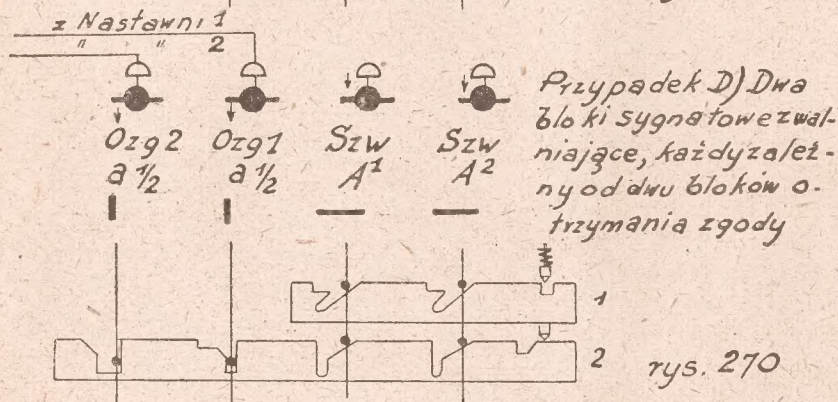 z Nastawni 1
" " 2
Ozg 2 Ozg 1 Szw Szw
a 1/2 a 1/2 A¹ A²
Przypadek D) Dwa
bloki sygnałowe zwal-
niające, każdy zależ-
ny od dwu bloków o-
trzymania zgody
1
2
rys. 270